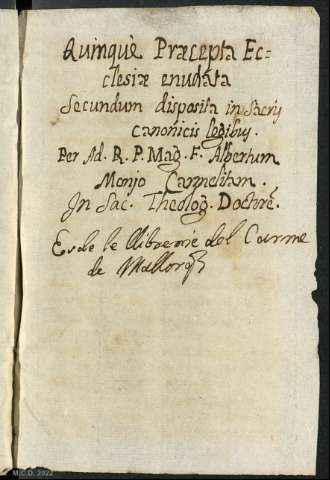 Quinquè Præcepta Ec-
clesiæ enudata
Secundum disposita in Sacris
canonicis legibus.
Per Ad. R. P. Mag. F. Albertum
Monjo Carmelitam.
In Sac. Theolog. Doctorẽ.
Es de la llibreria del Carme
de Mallorq
M.C.D. 2022